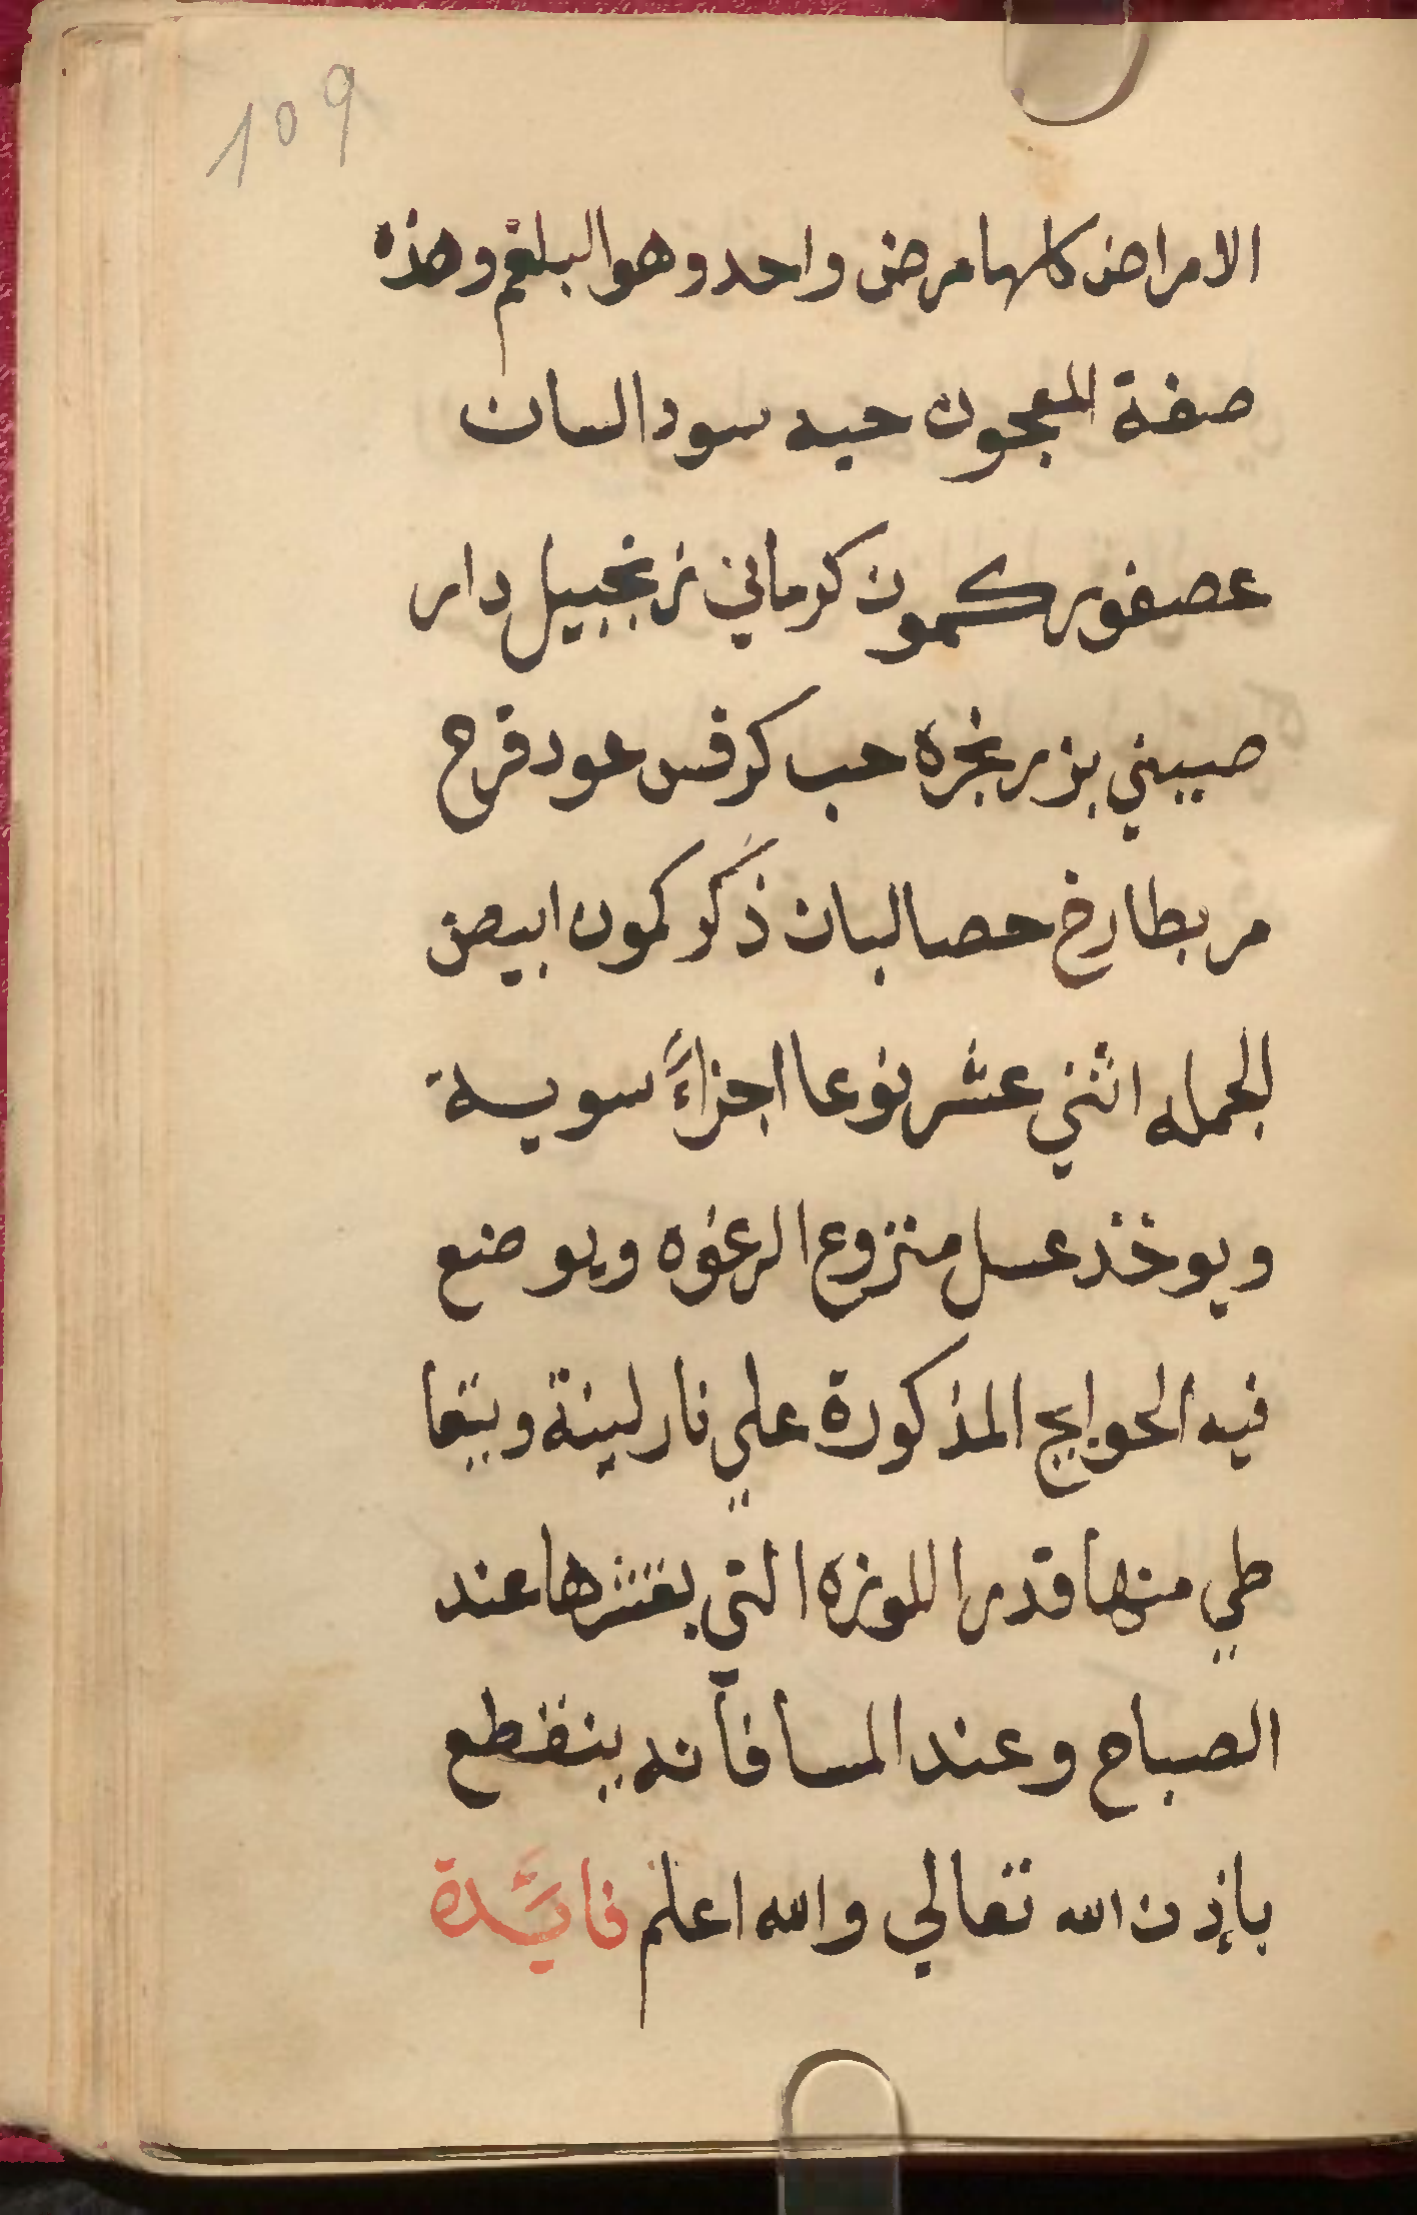 109
الامراض كلها مرض واحد وهو البلغم وهذه
صفة المعجون حبه سودا لسان
عصفور كمون كرماني زنجبيل دار
صيني بزر نجره حب كرفس عود قرح
مر بطارخ حصا لبان ذكر كمون ابيض
الجمله اثني عشر نوعا اجزاءً سوية
ويوخذ عسل منزوع الرغوه ويوضع
فيه الحوايج المذكورة علي نار لينة ويتعا
طي منها قدر اللوزه التي بقشرها عند
الصباح وعند المسا فأنه ينقطع
بإذن الله تعالي والله اعلم فايَّدة